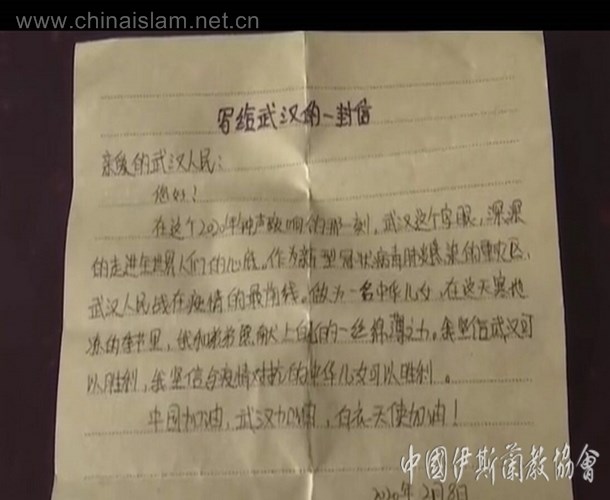 www.chinaislam.net.cn
写给武汉的一封信
亲爱的武汉人民：
您好！
在这个2020年钟声敲响的那一刻，武汉这个字眼，深深
的走进全世界人们的心底。作为新型冠状病毒肺炎感染的重灾区，
武汉人民战在疫情的最前线。做为一名中华儿女，在这天寒地
冻的季节里，我和爸爸愿献上自己的一丝绵薄之力。我坚信武汉可
以胜利，我坚信与疫情对抗的中华儿女可以胜利。
中国加油，武汉加油，白衣天使加油！
中國伊斯蘭教協會
2020年2月8日